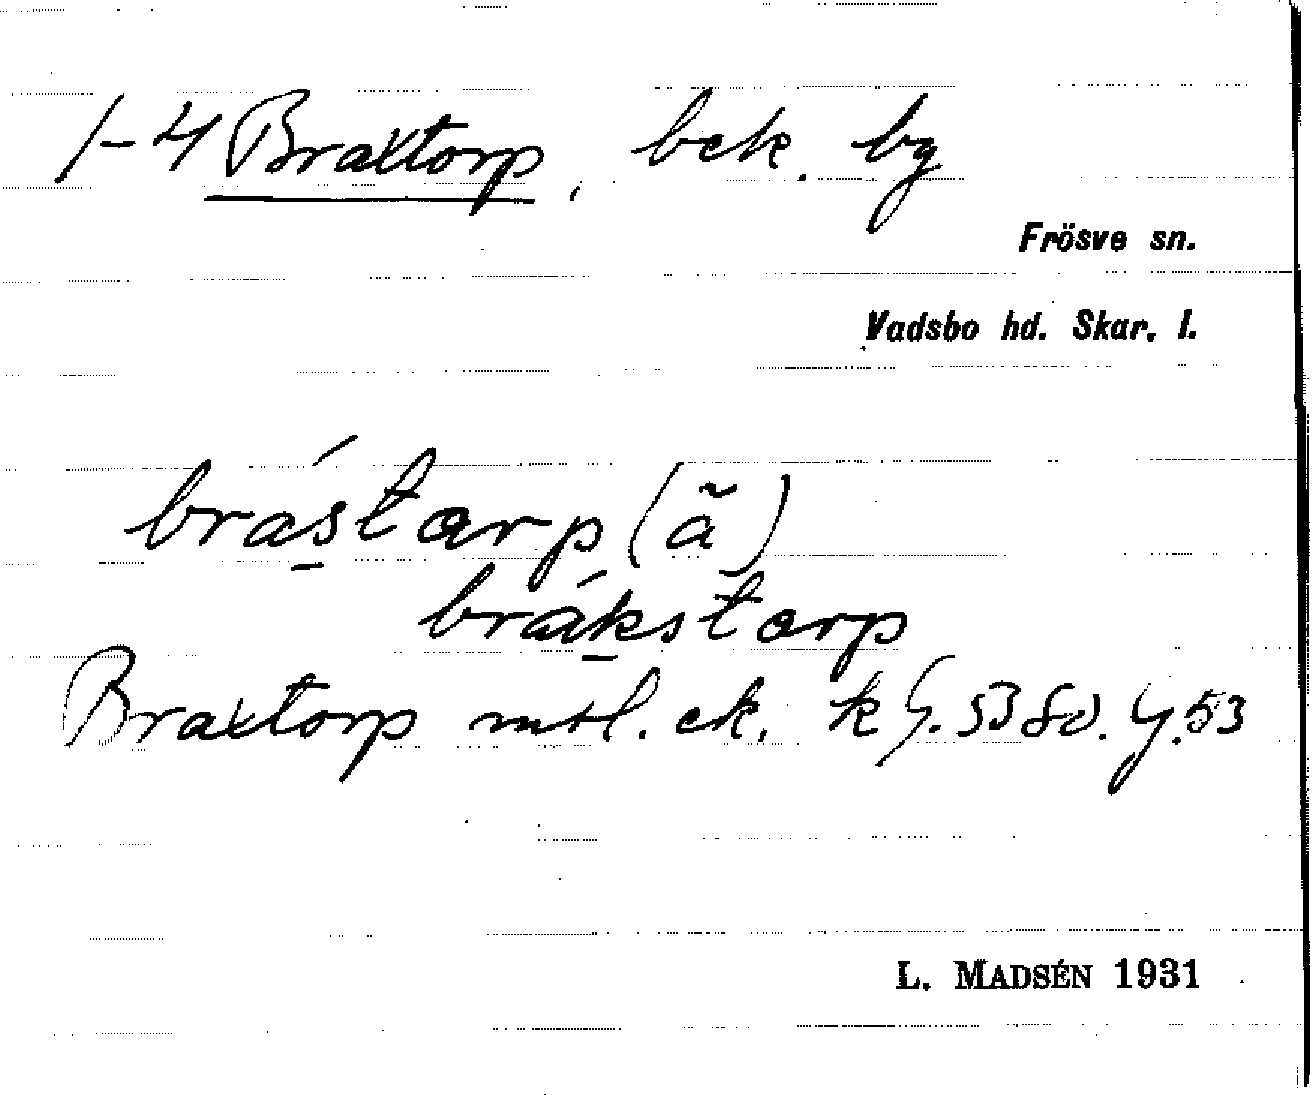 1-4 Braxtorp, bek. bg
Frösve sn.
Vadsbo hd. Skar. l.
brástarp (ã)
brákstarp
Braxtorp mtl. ek. k G. 53 80. y. 53
L. MADSÉN 1931